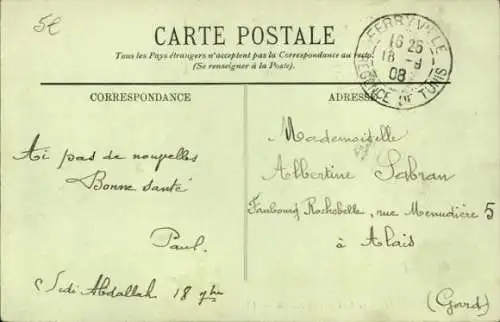 5c
CARTE POSTALE
Tous les Pays étrangers n'acceptent pas la Correspondance au recto.
(Se renseigner à la Poste).
FERRYVILLE
16 25
18 -9
08
REGENCE DE TUNIS
CORRESPONDANCE
Ai pas de nouvelles
Bonne santé
Paul.
Sedi Abdallah 18
ADRESSE
Mademoiselle
Albertine Sabran
Faubourg Rochebelle, rue Menudière 5
à Alais
(Gard)